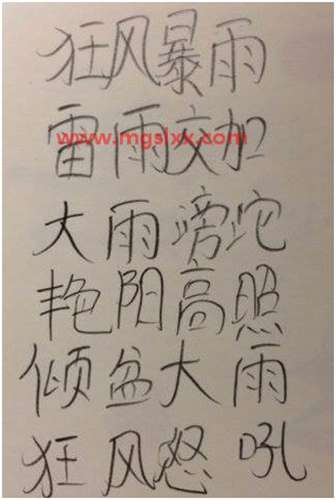 狂风暴雨
www.mgslxx.com
雷雨交加
大雨滂沱
艳阳高照
倾盆大雨
狂风怒吼